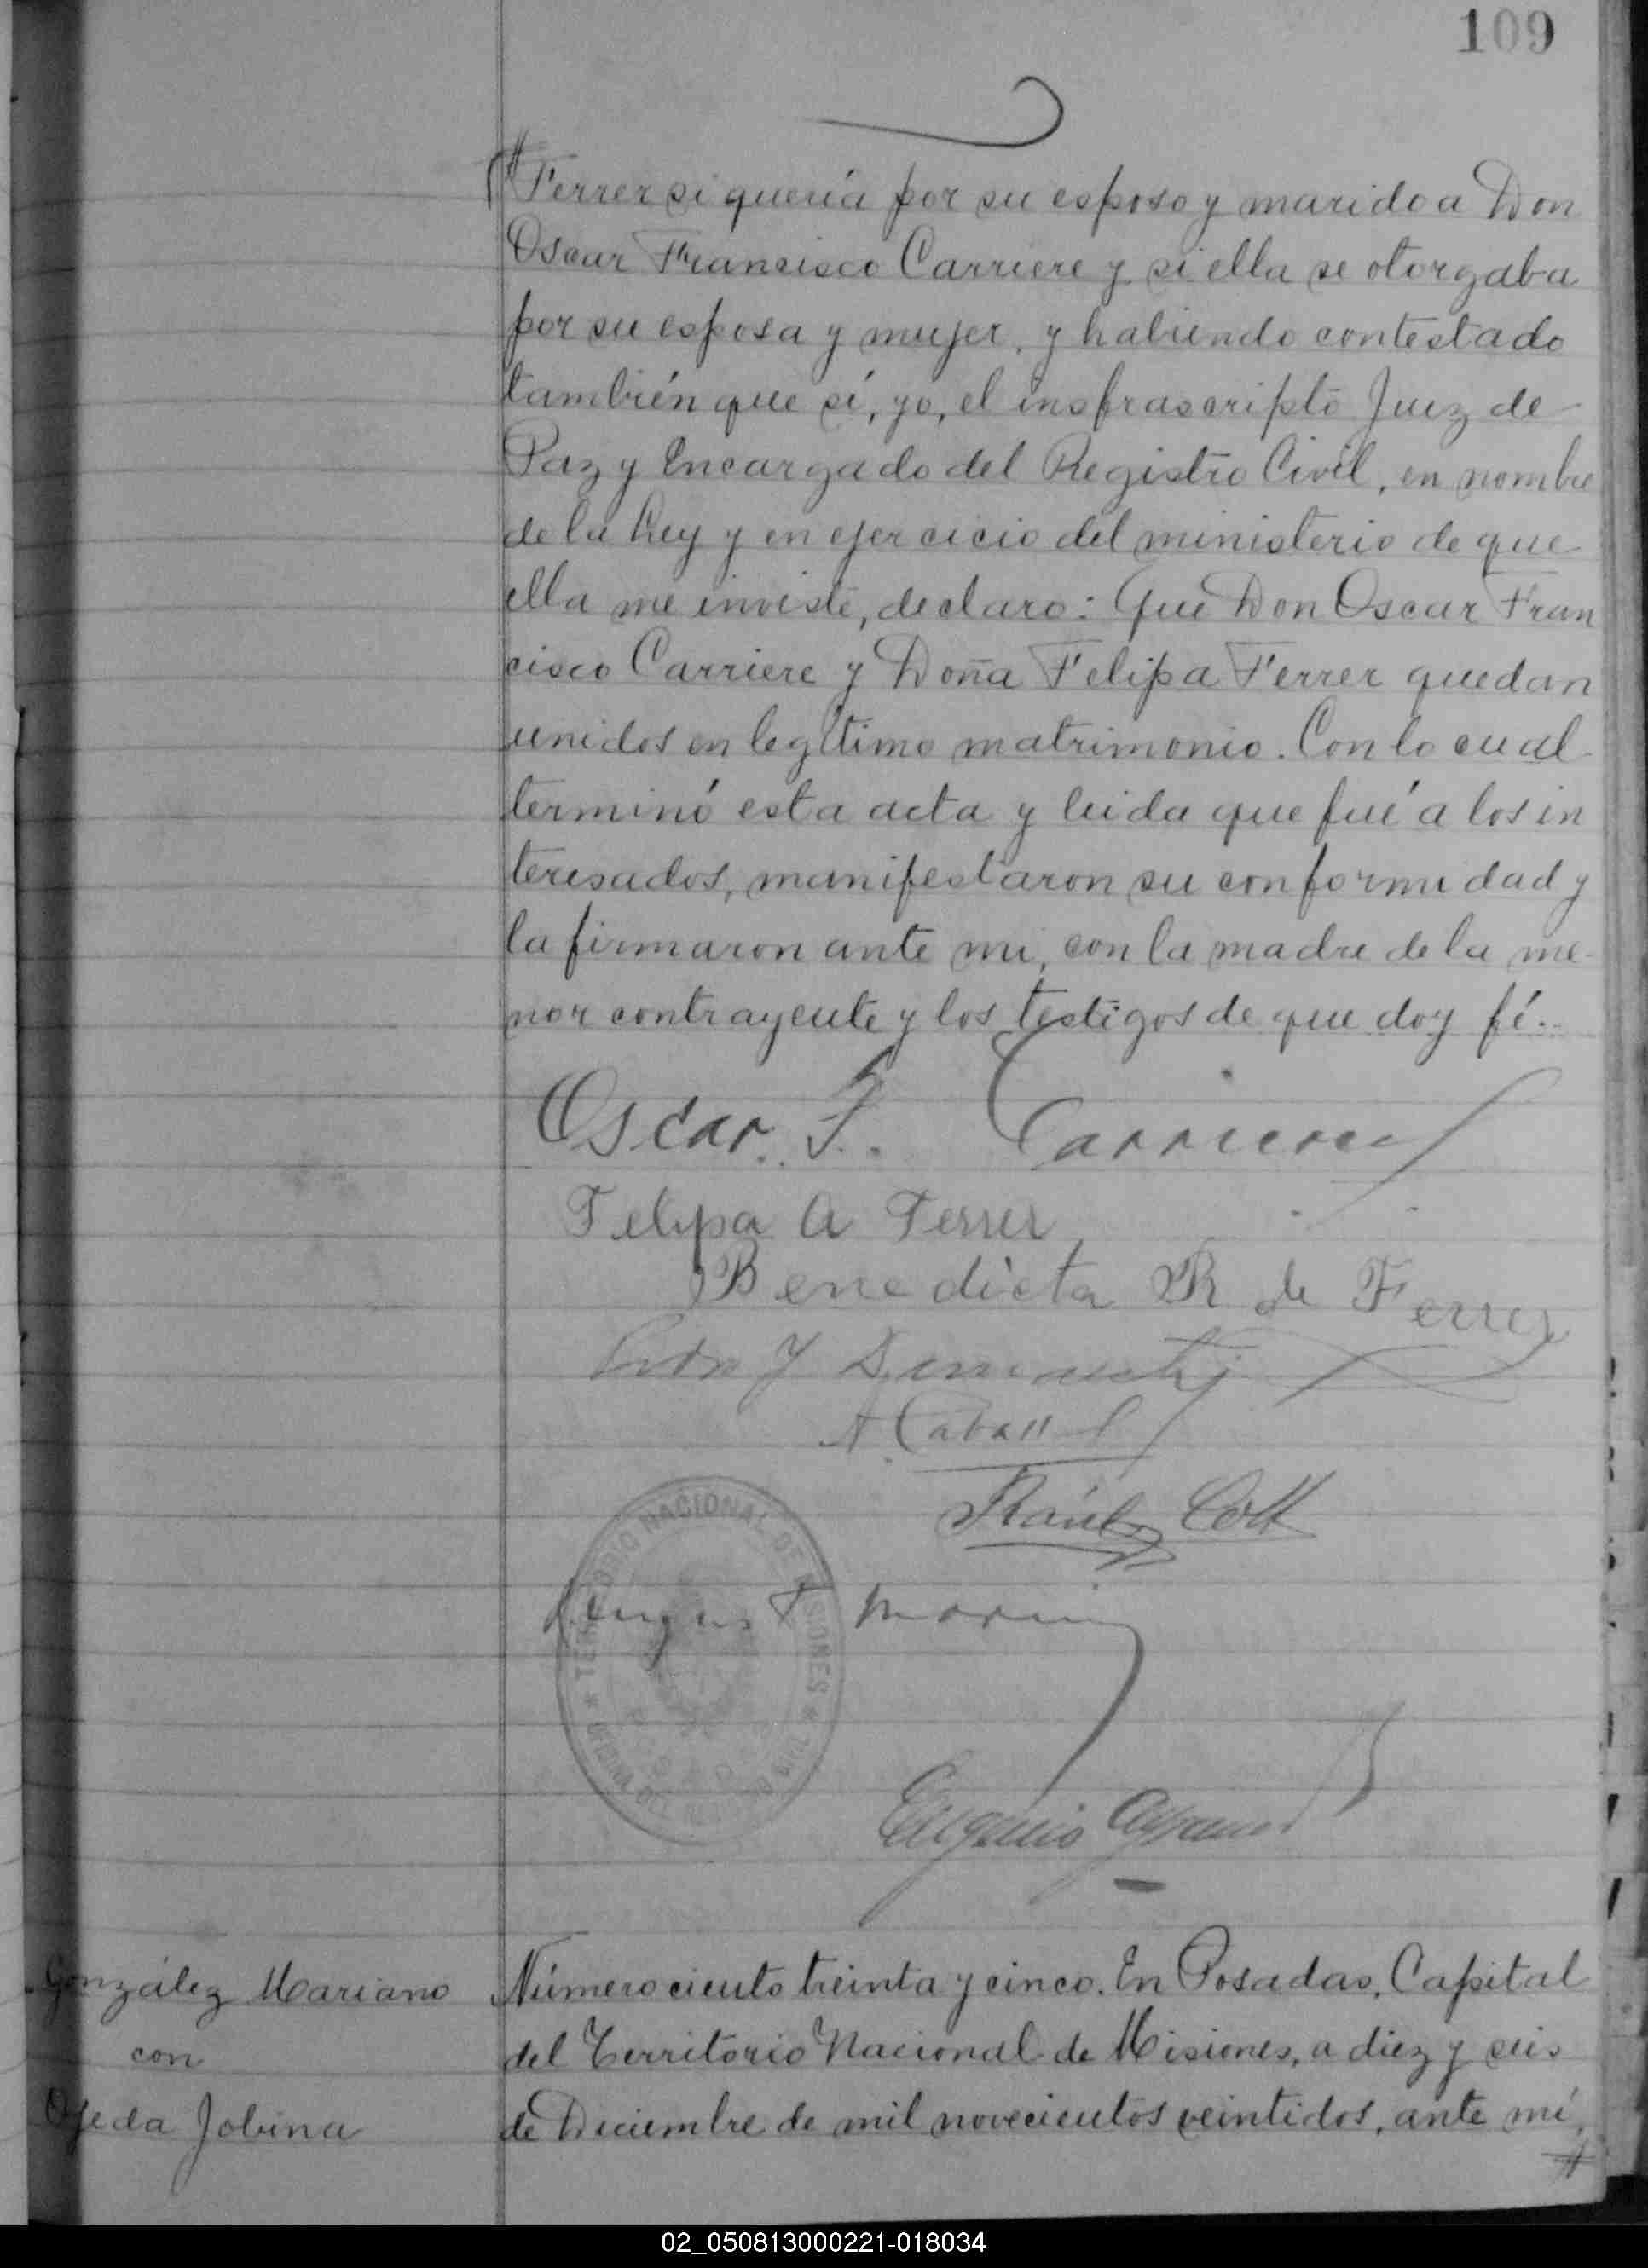 109
Ferrer si quería por su esposo y marido a Don
Oscar Francisco Carriere y si ella se otorgaba
por su esposa y mujer, y habiendo contestado
también que sí, yo, el insfrascripto Juez de
Paz y Encargado del Registro Civil, en nombre
de la Ley y en ejercicio del ministerio de que
ella me inviste, declaro: Que Don Oscar Fran
cisco Carriere y Doña Felipa Ferrer quedan
unidos en legítimo matrimonio. Con lo cual
terminó esta acta y leida que fué a los in
teresados, manifestaron su conformidad y
la firmaron ante mi, con la madre de la me-
nor contrayente y los testigos de que doy fé.
Oscar F. Carriere
Felipa A Ferrer
Benedicta R de Ferrer
Raúl Coll
TERRITORIO NACIONAL DE MISIONES
Eugenio
González Mariano
con
Ojeda Jobina
Número ciento treinta y cinco. En Posadas, Capital
del Territorio Nacional de Misiones, a diez y seis
de Diciembre de mil novecientos veintidos, ante mí,
02_050813000221-018034